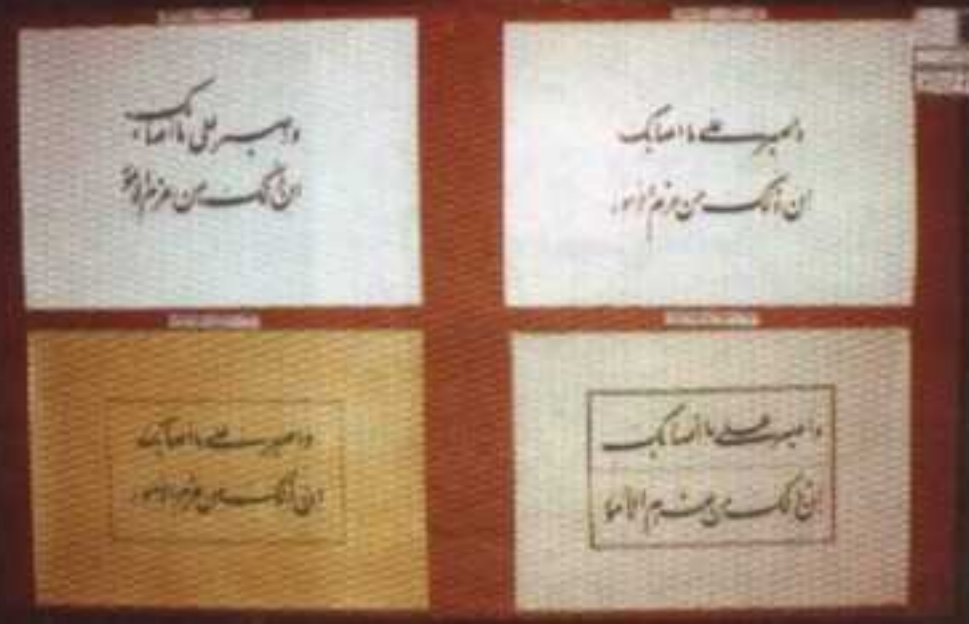 واصبر على ما اصابك
ان ذلك من عزم الامور
واصبر على ما اصابك
ان ذلك من عزم الامور
واصبر على ما اصابك
ان ذلك من عزم الامور
واصبر على ما اصابك
ان ذلك من عزم الامور